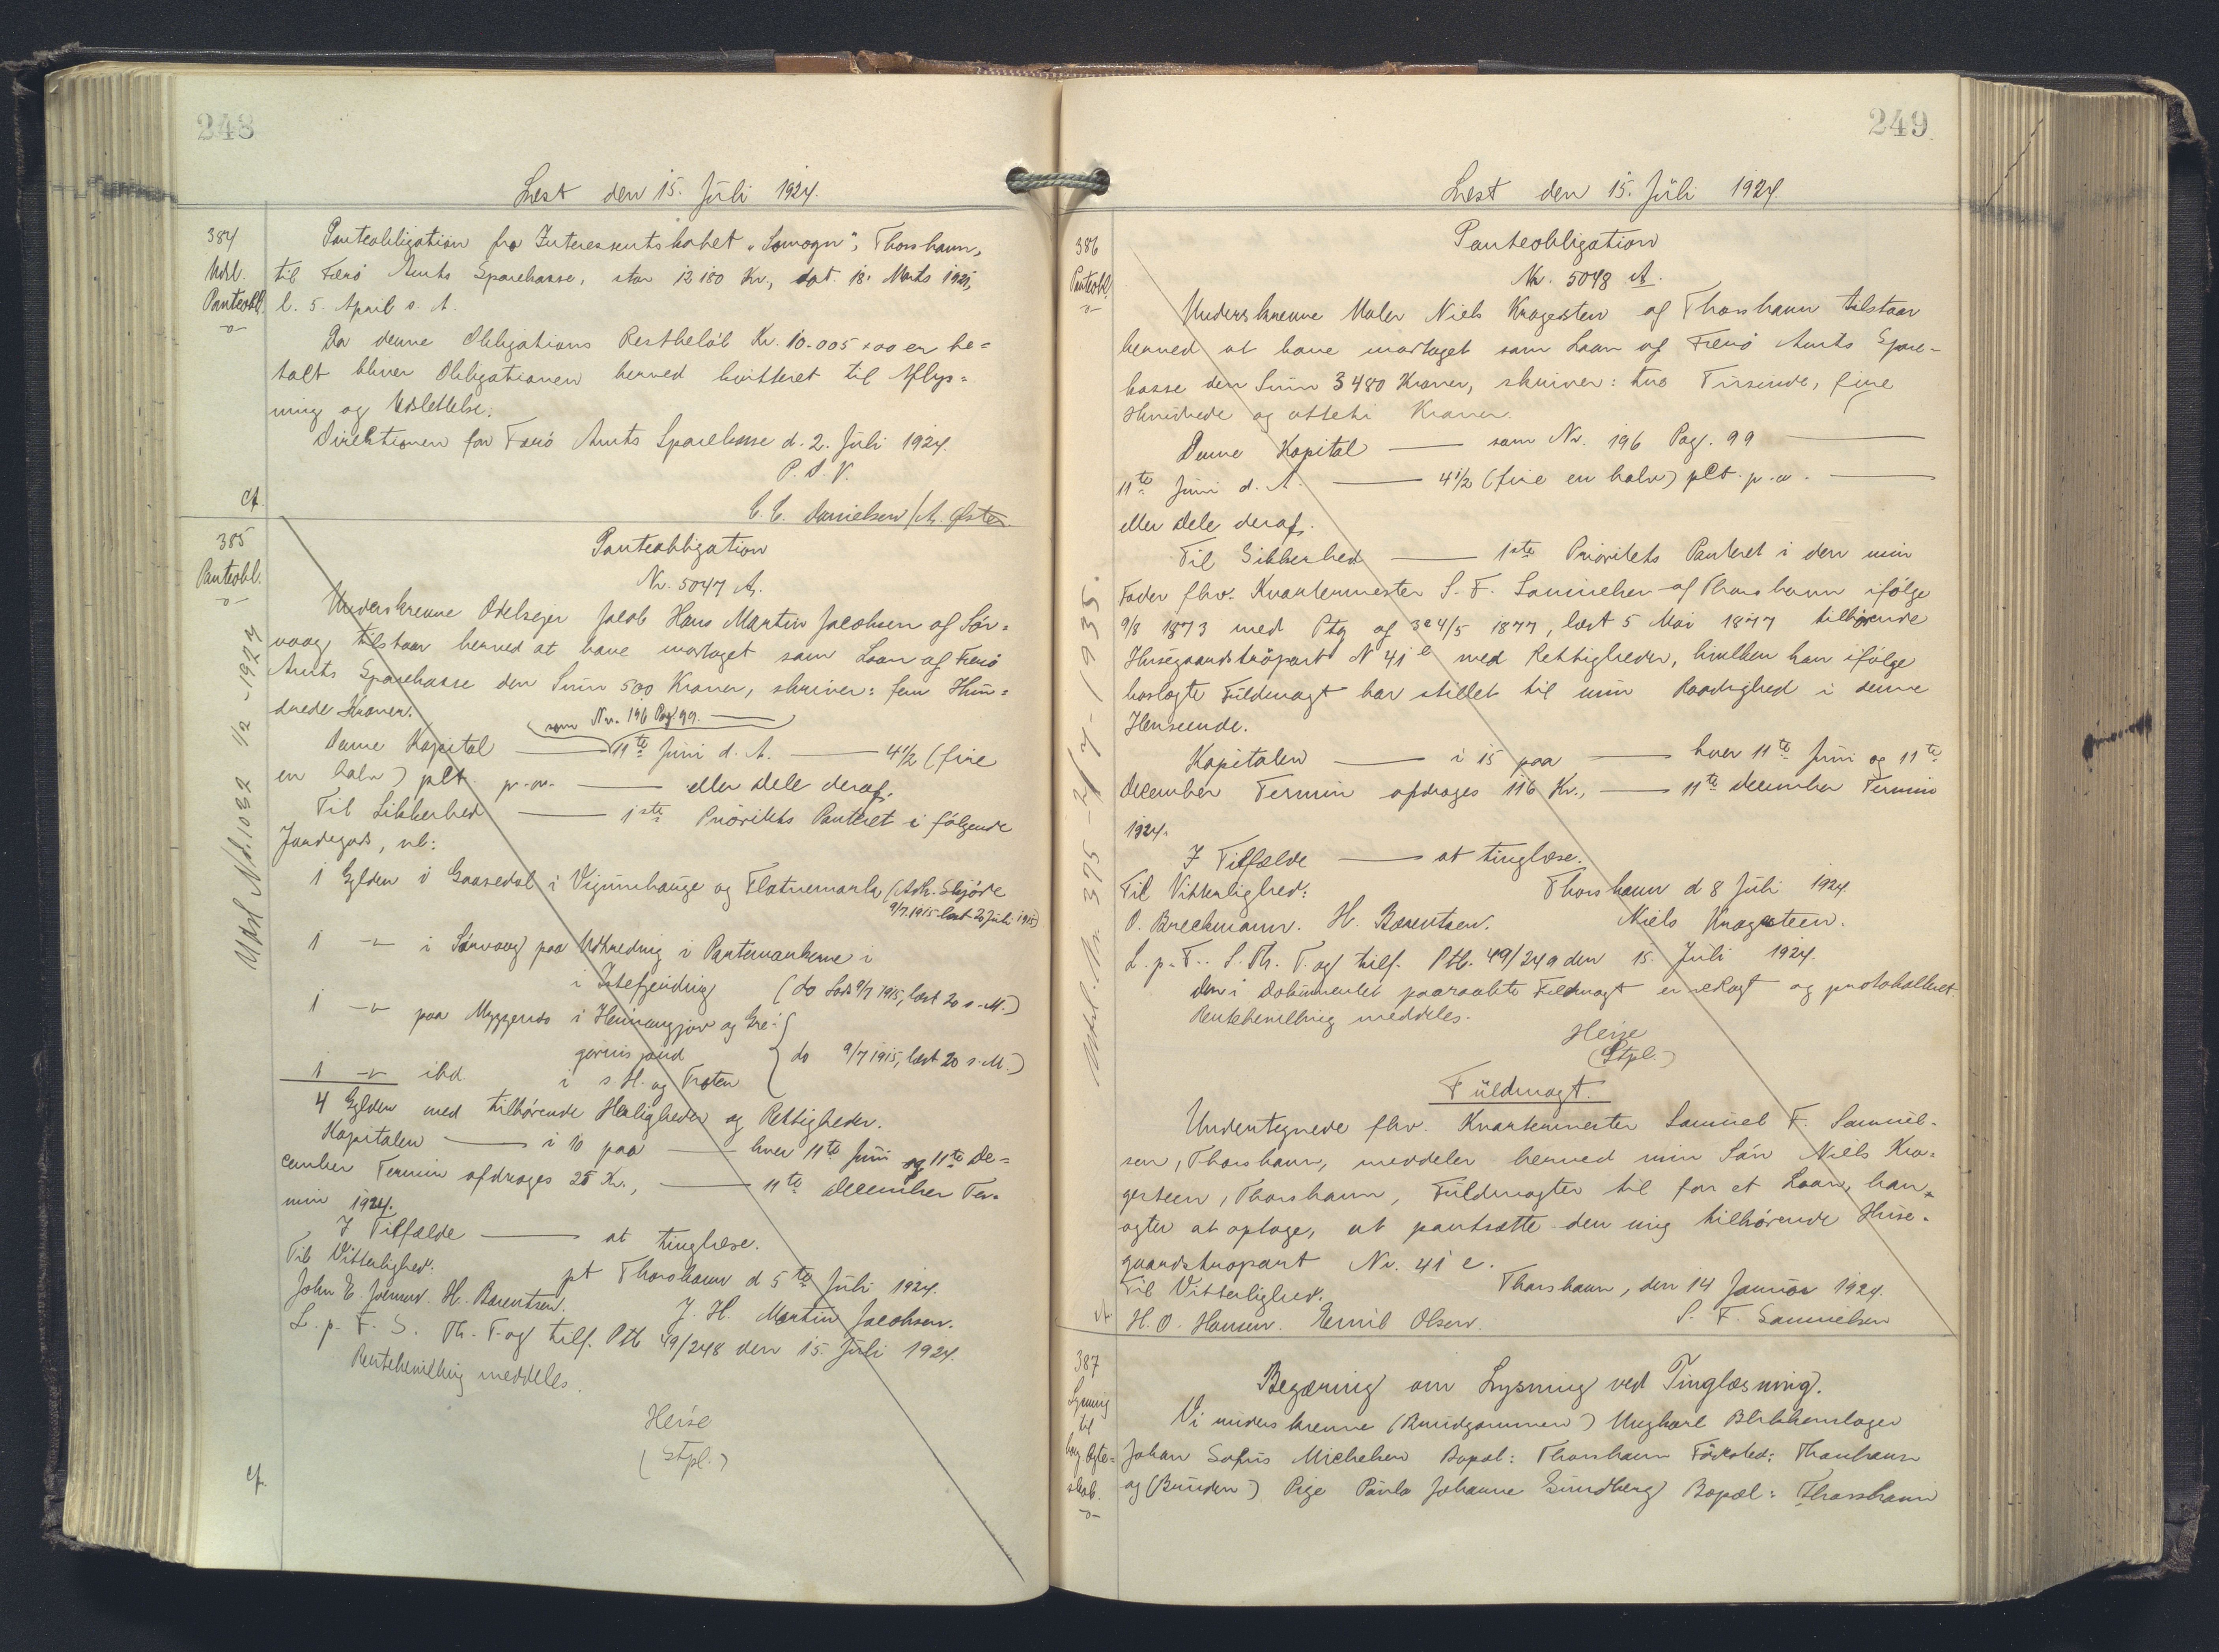 248
Læst den 15. Juli 1924.
384
Udsl.
Panteobl.
Panteobligation fra Interessentskabet "Somogn", Thorshavn,
til Færö Amts Sparekasse, stor 12180 Kr., dat. 18. Marts 1921,
l. 5. April s. A.
Da denne Obligations Restbelöb Kr. 10.005 × 00 er be=
talt bliver Obligationen herved kvitteret til Aflys=
ning og Udslettelse.
Direktionen for Færö Amts Sparekasse d. 2. Juli 1924.
P. D. V.
C. C. Danielsen / A. Øster
cf.
385
Panteobl.
Udsl Nd. 1032 1/2 - 1927
Panteobligation
Nr. 5047 A.
Underskrevne Odelsejer Jacob Hans Martin Jacobsen af Sör=
vaag tilstaar herved at have modtaget som Laan af Færö
Amts Sparekasse den Sum 500 Kroner, skriver: fem Hun=
drede Kroner.
som Nr. 196 Pag 99.
Denne Kapital — 11te Juni d. A. — 4 1/2 (fire
en halv) pCt. p.a. — eller Dele deraf.
Til Sikkerhed — 1ste Prioritets Panteret i fölgende
Jordegods, nl:
1 Gylden i Gaasedal i Viguumhauge og Flatnemark (Adk. Skjöde
9/7 1915 læst 20 Juli 1915)
1 -"- i Sörvaag paa Udtredning i Pantemarkerne i
i Istefjending (do Sads 9/7 1915, læst 20 s. M.)
1 -"- paa Myggenæs i Heimangjov og Gre=
gariis jord
1 -"- ibd. i s. H. og Traten
do 9/7 1915, læst 20 s. M.)
4 Gylden med tilhörende Herligheder og Rettigheder.
Kapitalen — i 10 paa — hver 11te Juni og 11te De=
cember Termin afdrages 25 Kr., — 11te December Ter=
min 1924.
I Tilfælde — at tinglæse.
Til Vitterlighed:
pt Thorshavn d 5te Juli 1924.
John E. H. Barentsen.
J. H. Martin Jacobsen.
L. p. F. S. Th. T. og tilf. Ptb 49/248 den 15. Juli 1924.
Rentebevilling meddeles.
Heise
(Stpl.)
cf.
249
Læst den 15. Juli 1924.
386
Panteobl.
Udsl. Nr. 375 - 2/7 - 1935.
Panteobligation
Nr. 5048 A.
Underskrevne Maler Niels Kragesteen af Thorshavn tilstaar
herved at have modtaget som Laan af Færö Amts Spare=
kasse den Sum 3480 Kroner, skriver: tre Tusende, fire
Hundrede og otteti Kroner.
Denne Kapital — som Nr. 196 Pag. 99 —
11te Juni d. A. — 4 1/2 (fire en halv) pCt. p. a. —
eller Dele deraf.
Til Sikkerhed — 1ste Prioritets Panteret i den min
Fader fhv. Kvartermester S. F. Samuelsen af Thorshavn ifölge
9/8 1873 med Ptg af 4/5 1877, læst 5 Mai 1877 tilhörende
Husegaardströpart N 41 e med Rettigheder, hvilken han ifölge
hoslagte Fuldmagt har stillet til min Raadighed i denne
Henseende.
Kapitalen — i 15 paa — hver 11te Juni og 11te
December Termin afdrages 116 Kr., — 11te December Termin
1924.
I Tilfælde — at tinglæse.
Til Vitterlighed:
Thorshavn d 8 Juli 1924.
O. Breckmann. H. Barentsen.
Niels Kragesteen.
L. p. F. S. Th. T. og tilf. Ptb. 49/249 den 15. Juli 1924.
Den i Dokumentet paaraabte Fuldmagt er vedlagt og protokolleret.
Rentebevilling meddeles.
Heise
(Stpl.)
Fuldmagt.
Undertegnede fhv. Kvartermester Samuel F. Samuel=
sen, Thorshavn, meddeler herved min Sön Niels Kra=
gesteen, Thorshavn, Fuldmagter til for et Laan, han
agter at optage, at pantsætte den mig tilhörende Huse=
gaardstropart Nr. 41 e.
Til Vitterlighed.
Thorshavn, den 14 Januar 1924.
H. O. Hansen. Emil Olsen.
S. F. Samuelsen
cf.
387
Lysning
til
borg. Ægte=
skab.
Begæring om Lysning ved Tinglæsning.
Vi underskrevne (Brudgommen) Ungkarl Blikkenslager
Johan Sofus Michelsen Bopæl: Thorshavn Födested: Thorshavn
og (Bruden) Pige Paula Johanne Sundberg Bopæl: Thorshavn